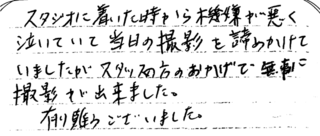 スタジオに着いた時から機嫌が悪く
泣いていて当日の撮影を諦めかけて
いましたがスタッフの方のおかげで無事に
撮影が出来ました。
有り難うございました。